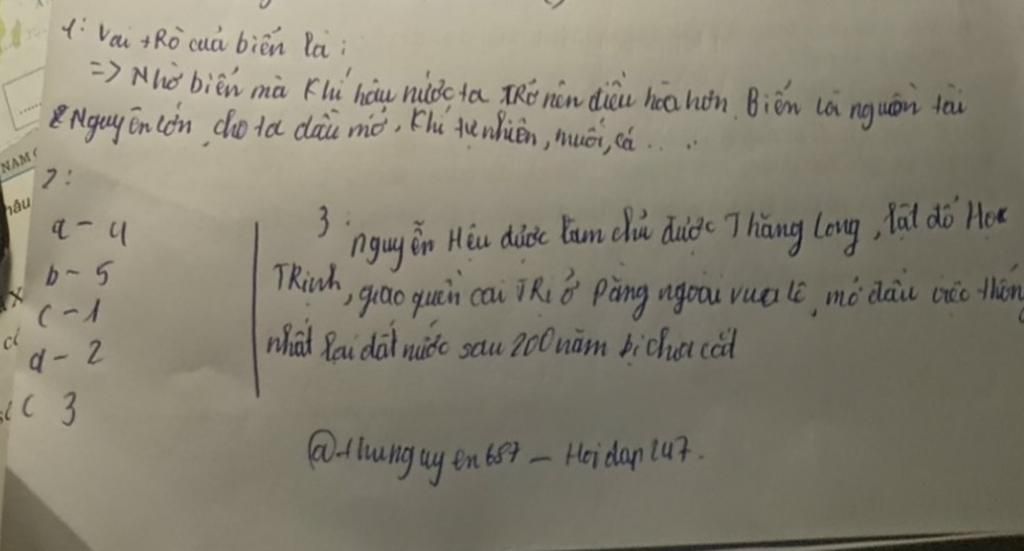 1: Vai tRò cuả biến là :
=> Nhờ biến mà Khí hâu nước ta TRở nên điều hòa hơn. Biến là nguồn tài
Nguyên lớn, cho ta dầu mớ, Khí tự nhiên, muối, cá . . . .
NAM
hâu
2:
a - 4
b - 5
c - 1
d - 2
c 3
3 :
Nguyễn Hêu được làm chủ được Thăng Long, lật đổ Họ
TRịnh, giao quền cai TRị ở Đàng ngoài vua lê, mở đầu việc thốn
nhất lại đất nước sau 200 năm bị chia cắt
@thunguyen687 - Hoidap247.